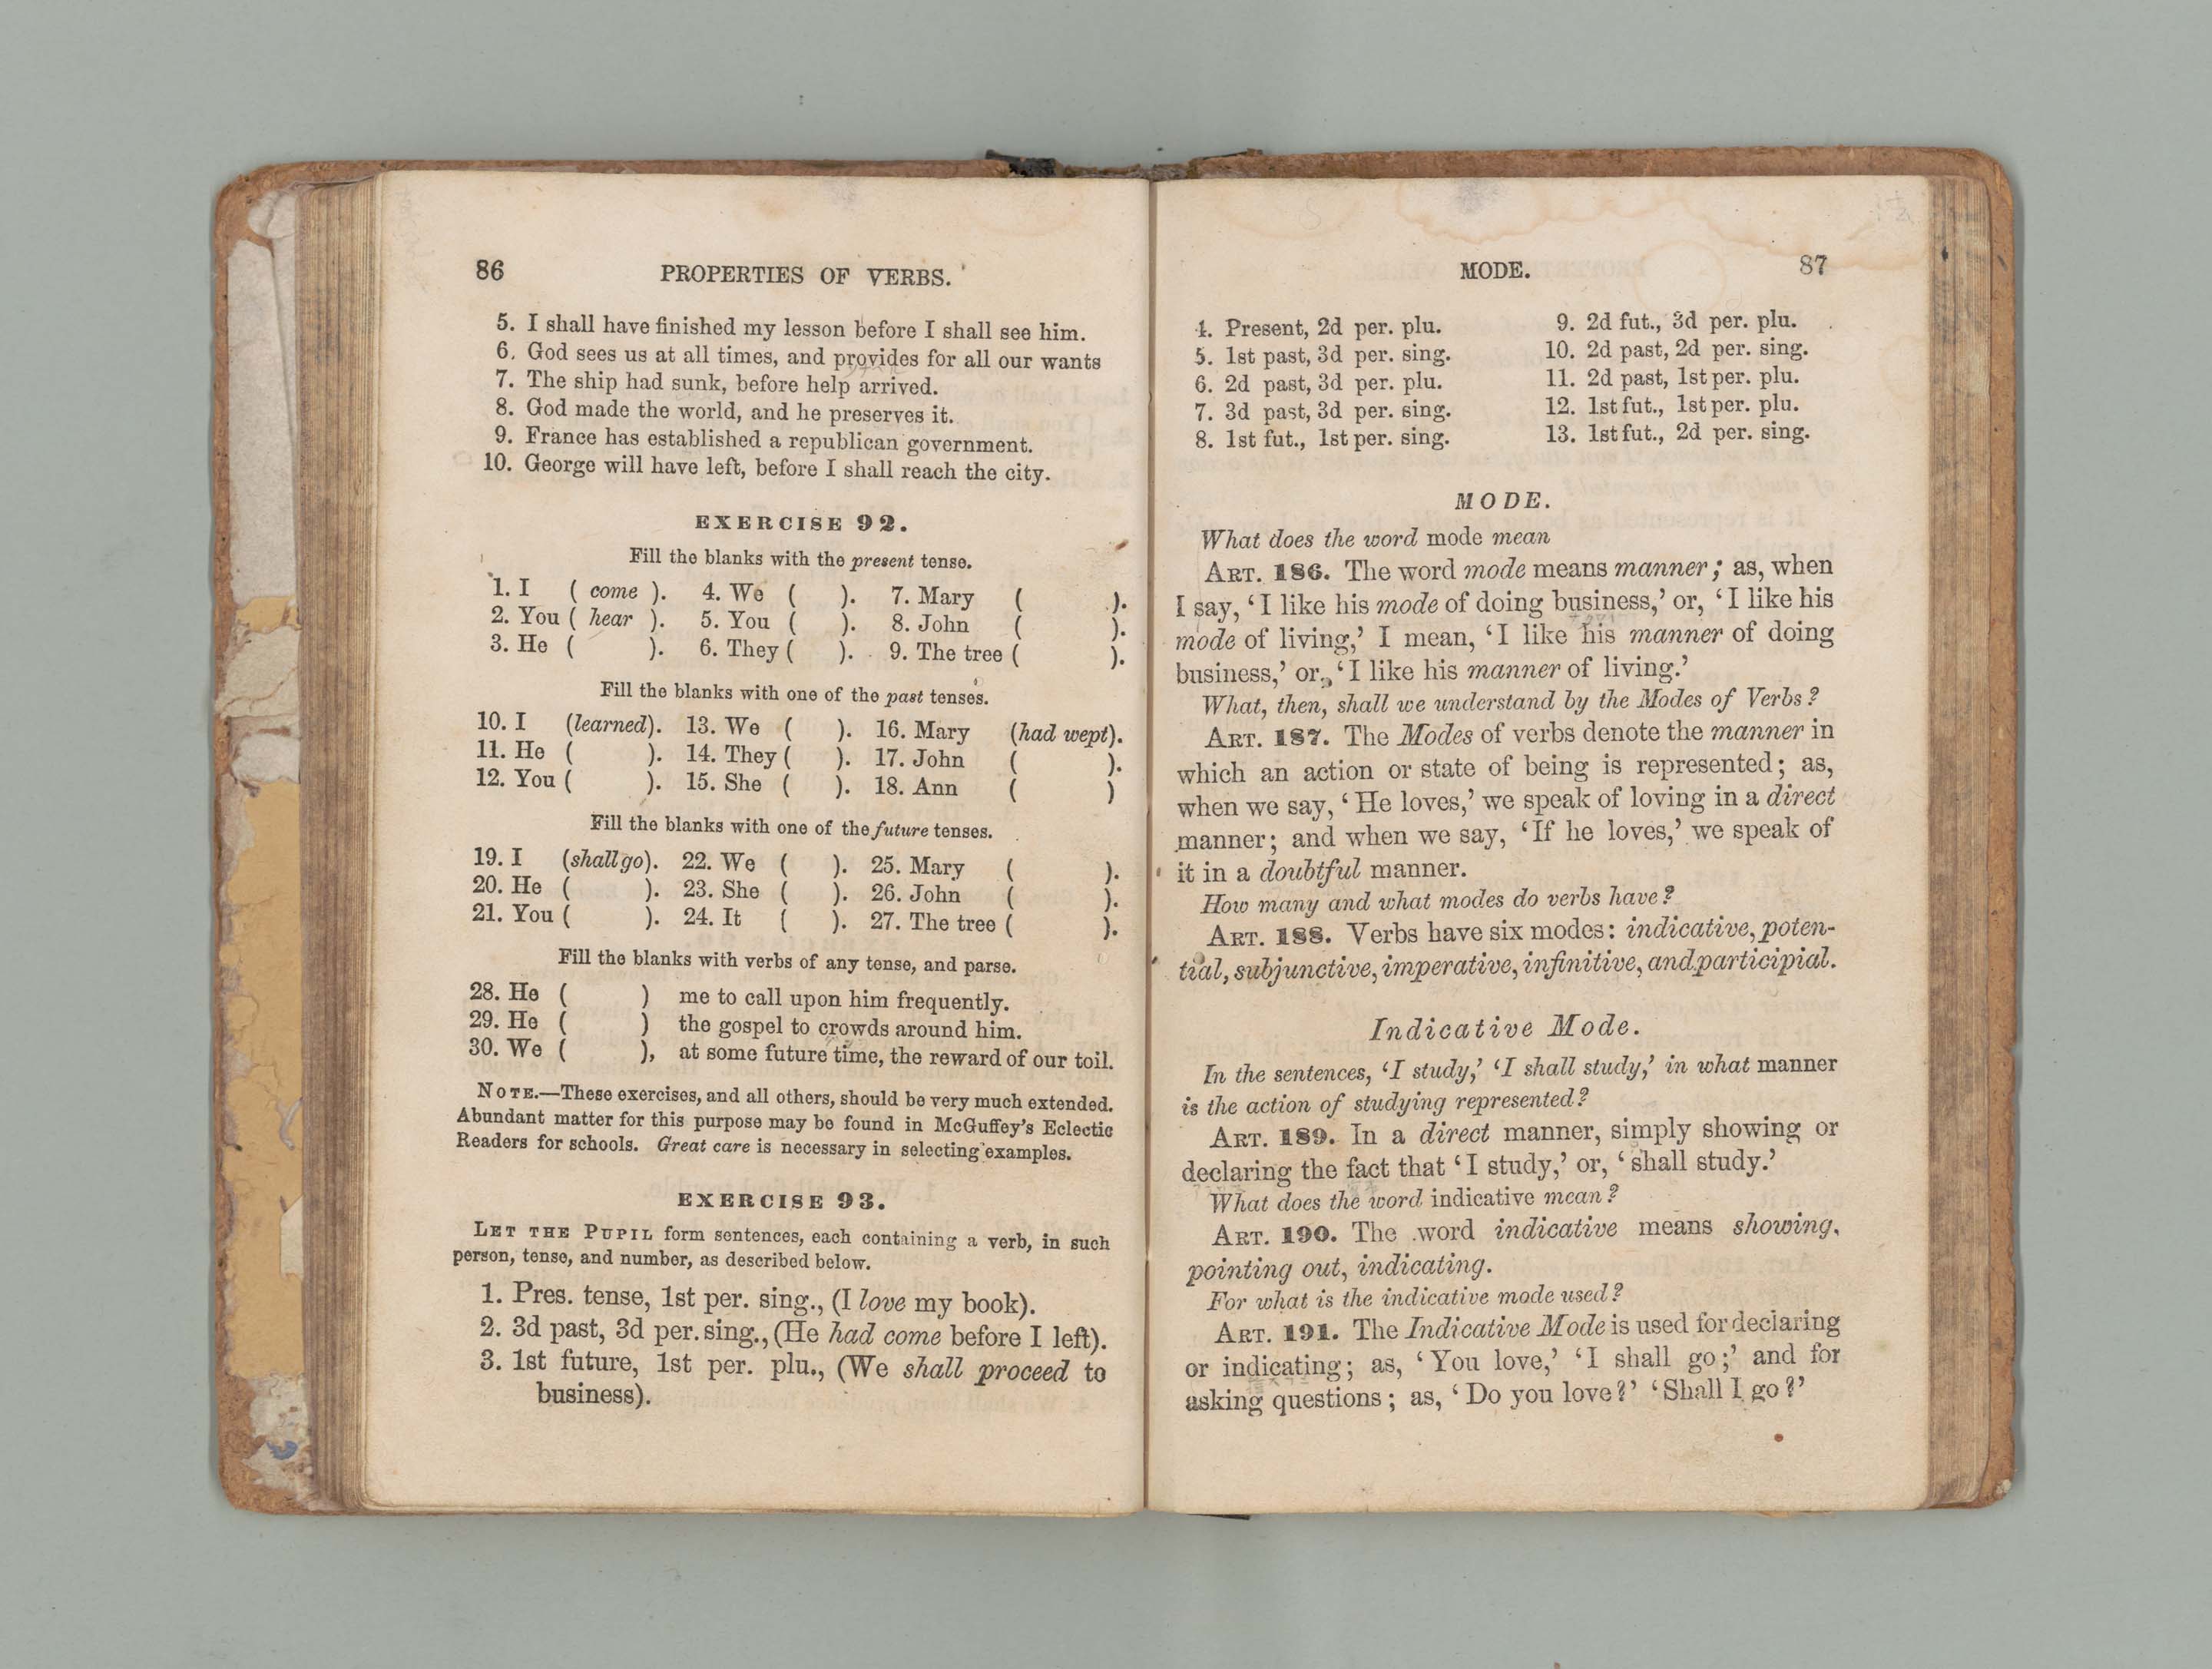 86 PROPERTIES OF VERBS.
5. I shall have finished my lesson before I shall see him.
6. God sees us at all times, and provides for all our wants
7. The ship had sunk, before help arrived.
8. God made the world, and he preserves it.
9. France has established a republican government.
10. George will have left, before I shall reach the city.
EXERCISE 92.
Fill the blanks with the present tense.
1. I ( come ). 4. We ( ). 7. Mary ( ).
2. You ( hear ). 5. You ( ). 8. John ( ).
3. He ( ). 6. They ( ). 9. The tree ( ).
Fill the blanks with one of the past tenses.
10. I (learned). 13. We ( ). 16. Mary (had wept).
11. He ( ). 14. They ( ). 17. John ( ).
12. You ( ). 15. She ( ). 18. Ann ( )
Fill the blanks with one of the future tenses.
19. I (shall go). 22. We ( ). 25. Mary ( ).
20. He ( ). 23. She ( ). 26. John ( ).
21. You ( ). 24. It ( ). 27. The tree ( ).
Fill the blanks with verbs of any tense, and parse.
28. He ( ) me to call upon him frequently.
29. He ( ) the gospel to crowds around him.
30. We ( ), at some future time, the reward of our toil.
NOTE.—These exercises, and all others, should be very much extended.
Abundant matter for this purpose may be found in McGuffey's Eclectic
Readers for schools. Great care is necessary in selecting examples.
EXERCISE 93.
LET THE PUPIL form sentences, each containing a verb, in such
person, tense, and number, as described below.
1. Pres. tense, 1st per. sing., (I love my book).
2. 3d past, 3d per. sing., (He had come before I left).
3. 1st future, 1st per. plu., (We shall proceed to
business).
MODE. 87
4. Present, 2d per. plu. 9. 2d fut., 3d per. plu.
5. 1st past, 3d per. sing. 10. 2d past, 2d per. sing.
6. 2d past, 3d per. plu. 11. 2d past, 1st per. plu.
7. 3d past, 3d per. sing. 12. 1st fut., 1st per. plu.
8. 1st fut., 1st per. sing. 13. 1st fut., 2d per. sing.
MODE.
What does the word mode mean
ART. 186. The word mode means manner; as, when
I say, 'I like his mode of doing business,' or, 'I like his
mode of living,' I mean, 'I like his manner of doing
business,' or, 'I like his manner of living.'
What, then, shall we understand by the Modes of Verbs?
ART. 187. The Modes of verbs denote the manner in
which an action or state of being is represented; as,
when we say, 'He loves,' we speak of loving in a direct
manner; and when we say, 'If he loves,' we speak of
it in a doubtful manner.
How many and what modes do verbs have?
ART. 188. Verbs have six modes: indicative, poten-
tial, subjunctive, imperative, infinitive, and participial.
Indicative Mode.
In the sentences, 'I study,' 'I shall study,' in what manner
is the action of studying represented?
ART. 189. In a direct manner, simply showing or
declaring the fact that 'I study,' or, 'shall study.'
What does the word indicative mean?
ART. 190. The word indicative means showing,
pointing out, indicating.
For what is the indicative mode used?
ART. 191. The Indicative Mode is used for declaring
or indicating; as, 'You love,' 'I shall go;' and for
asking questions; as, 'Do you love?' 'Shall I go?'